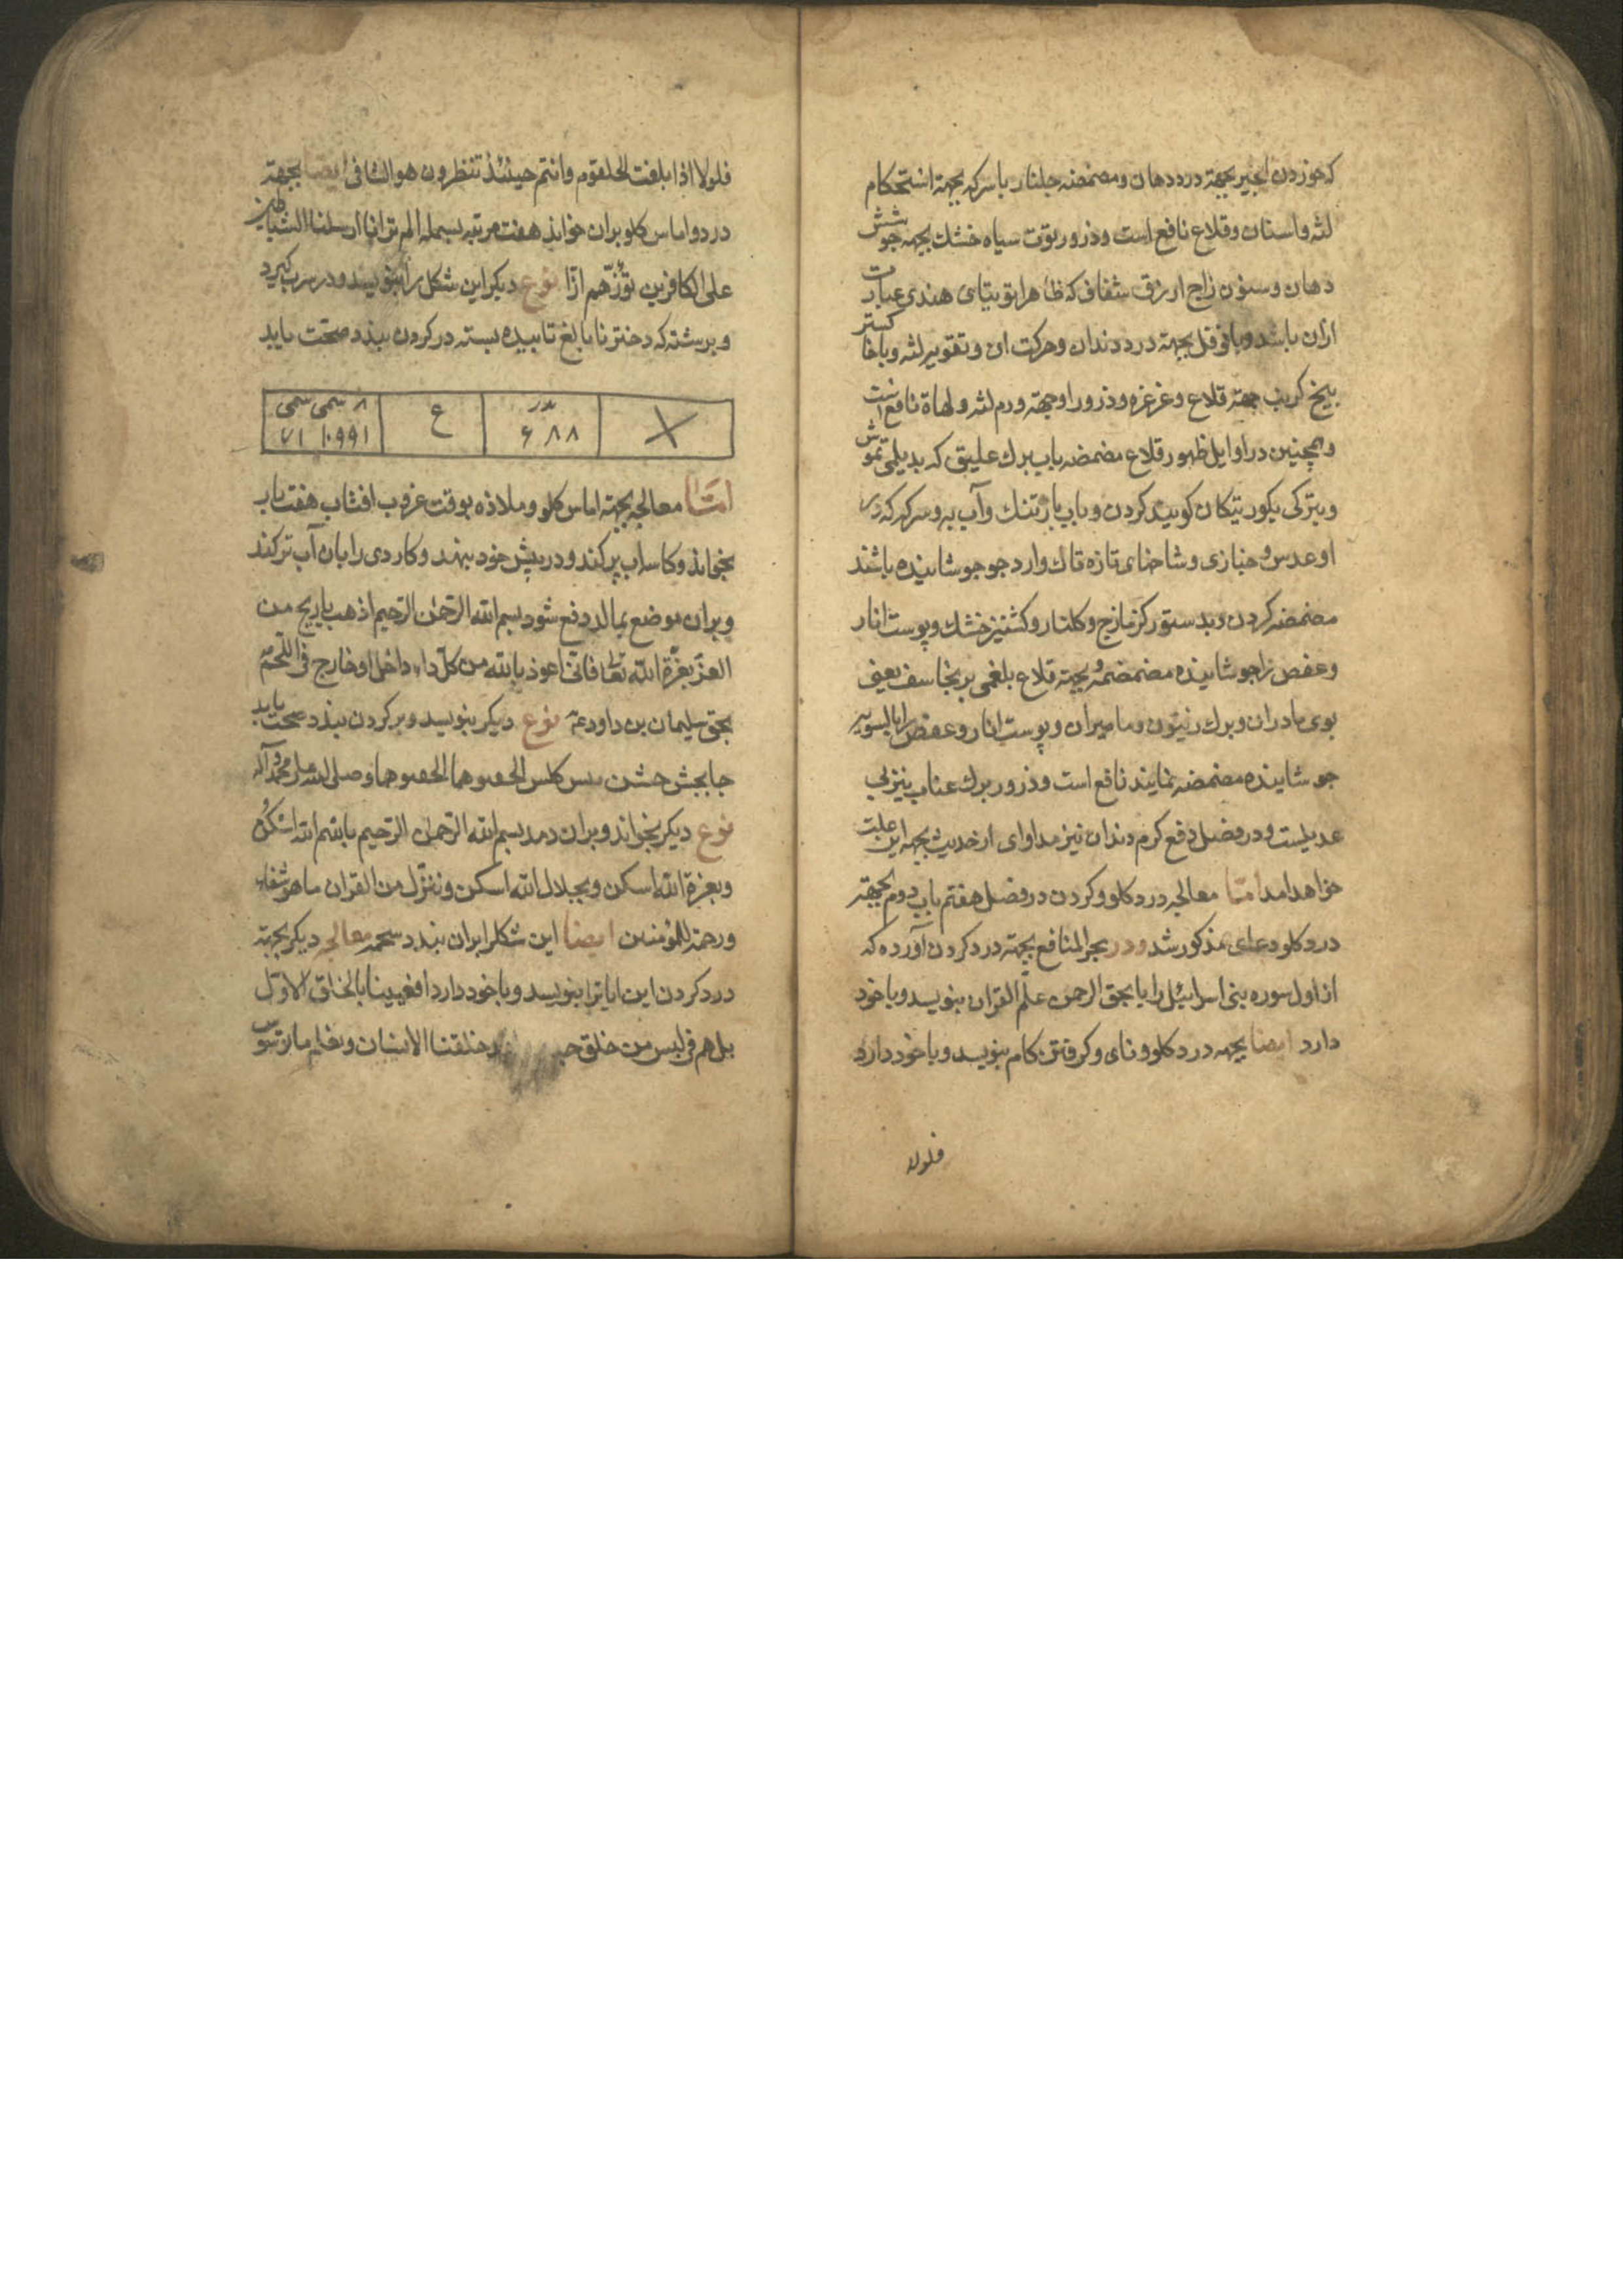 که خوردن انجیر بجهة درد دهان و مضمضه جلنار با سرکه بجهة استحکام
لثه و اسنان و قلاع نافع است و ذرور توت سیاه خشك بجهه جوشش
دهان و سنون زاج ازرق شفاف که ظاهرا توتیای هندی عبارت
ازان باشد و با فوفل بجهة درد دندان و حرکت ان و تقویر لثه و با خاکستر
بیخ کرنب جهة قلاع و غرغره و ذرور او جهة ورم لثه و لهاة نافع است
و همچنین در اوایل ظهور قلاع مضمضه باب برك علیق که بدیلمی تموش
و بترکی بکورتیکان کویند کردن و باب بارتنك و آب به و سرکه که در
او عدس و خبازی و شاخهای تازه تاك و ارد جو جوشانیده باشند
مضمضه کردن و بدستور کزمازج و کلنار و کشنیز خشك و پوست انار
و عفص را جوشانیده مضمضه و بجهة قلاع بلغمی برنجاسف یعنی
بوی مادران و برك زیتون و مامیران و پوست انار و عفص را بالسویه
جوشانیده مضمضه نمایند نافع است و ذرور برك عناب نیز بی
عدیلست و در فصل دفع کرم دندان نیز مداوای از حدیث بجهه این علت
خواهد امد امّا معالجه درد کلو و کردن در فصل هفتم باب دوم بجهة
درد کلو دعای مذکور شد و در بحر المنافع بجهة درد کردن آورده که
از اول سوره بنی اسرائیل را یا بحق الرحمن علّم القران بنویسد و با خود
دارد ایضا بجهه درد کلو و نای و کرفتن کام بنویسد و با خود دارد
فلولا
فلولا اذا بلغت الحلقوم وانتم حینئذ تنظرون هو الشافی ایضا بجهة
درد و اماس کلو بران خواند هفت مرتبه بسمله الم تر انا ارسلنا الشیاطین
علی الکافرین تؤزّهم ازّا نوع دیکر این شکل را بنویسد و در سرب کیرد
و برشته که دختر نابالغ تابیده بسته در کردن بندد صحّت یابد
X
بدر ۶۸۸
ع
۸ سمی سمی ۷۱ ۱۰۹۹۱
امّا معالجه بجهة اماس کلو و ملاذه بوقت غروب افتاب هفت بار
بخواند و کاسه اب پر کند و در پیش خود بنهد و کاردی را بان آب تر کند
و بران موضع بمالد دفع شود بسم الله الرحمن الرحیم اذهب یا ریح من
العزّ بعزّة الله تعالی فانی اعوذ بالله من کلّ داء داخل او خارج فی اللحمّ
بحق سلیمان بن داود ع نوع دیکر بنویسد و بر کردن بندد صحت یابد
وصلی الله علی محمد و آله
نوع دیکر بخواند و بران دمد بسم الله الرحمن الرحیم بابسم الله اسکن
و بعزة الله اسکن و بجلال الله اسکن و ننزل من القران ما هو شفاء
و رحمة للمؤمنین ایضا این شکل را بران بندد معالجه دیکر بجهة
درد کردن این ایاترا بنویسد و با خود دارد افعیینا بالخلق الاوّل
بل هم فی لبس من خلق خلقنا الانسان ونعلم ما توسوس